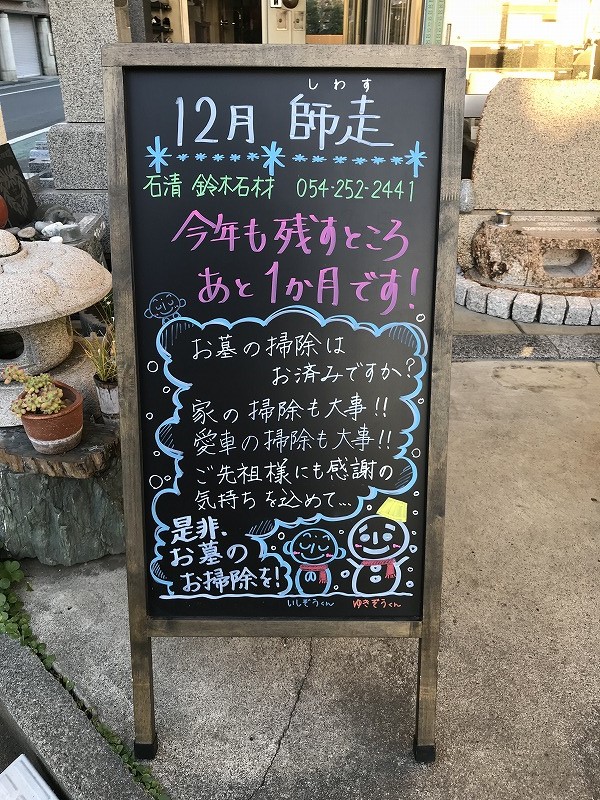 しわす
12月 師走
石清 鈴木石材 054-252-2441
今年も残すところ
あと1か月です!
お墓の掃除は
お済みですか?
家の掃除も大事!!
愛車の掃除も大事!!
ご先祖様にも感謝の
気持ちを込めて...
是非、
お墓の
お掃除を!
いしぞうくん ゆきぞうくん